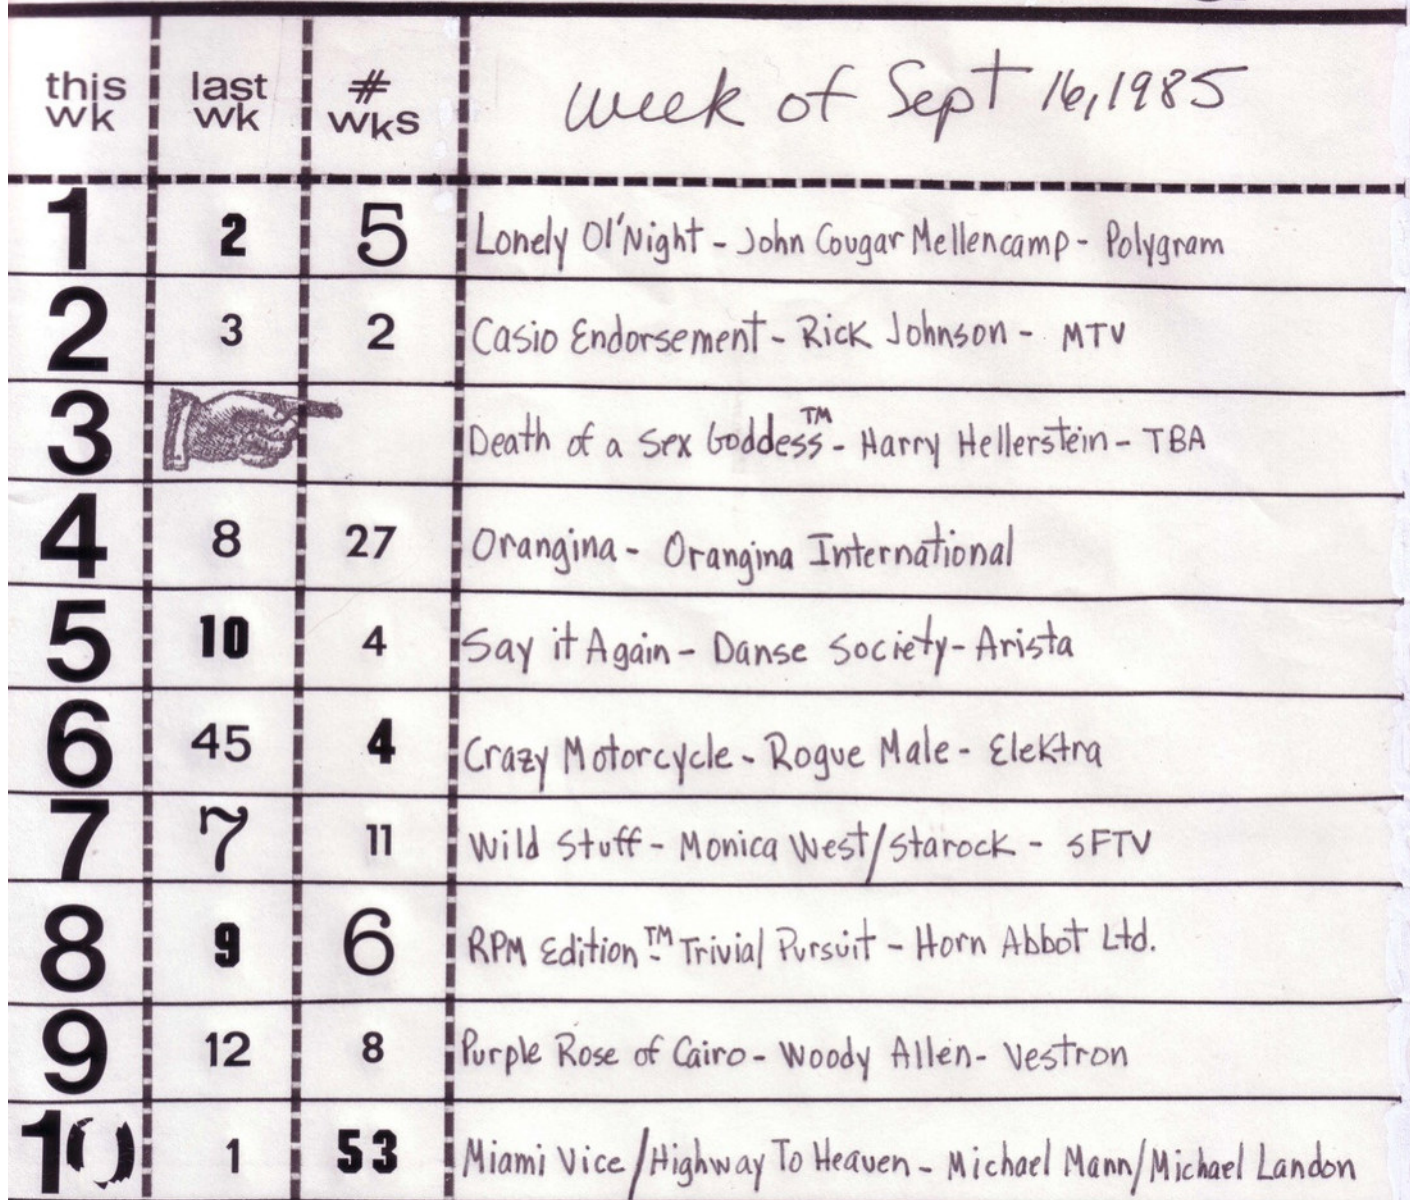 this wk last wk # wks week of Sept 16, 1985
1 2 5 Lonely Ol' Night - John Cougar Mellencamp - Polygram
2 3 2 Casio Endorsement - Rick Johnson - MTV
3 Death of a Sex Goddess™ - Harry Hellerstein - TBA
4 8 27 Orangina - Orangina International
5 10 4 Say it Again - Danse Society - Arista
6 45 4 Crazy Motorcycle - Rogue Male - Elektra
7 7 11 Wild Stuff - Monica West/Starock - SFTV
8 9 6 RPM Edition™ - Trivial Pursuit - Horn Abbot Ltd.
9 12 8 Purple Rose of Cairo - Woody Allen - Vestron
10 1 53 Miami Vice/Highway To Heaven - Michael Mann/Michael Landon